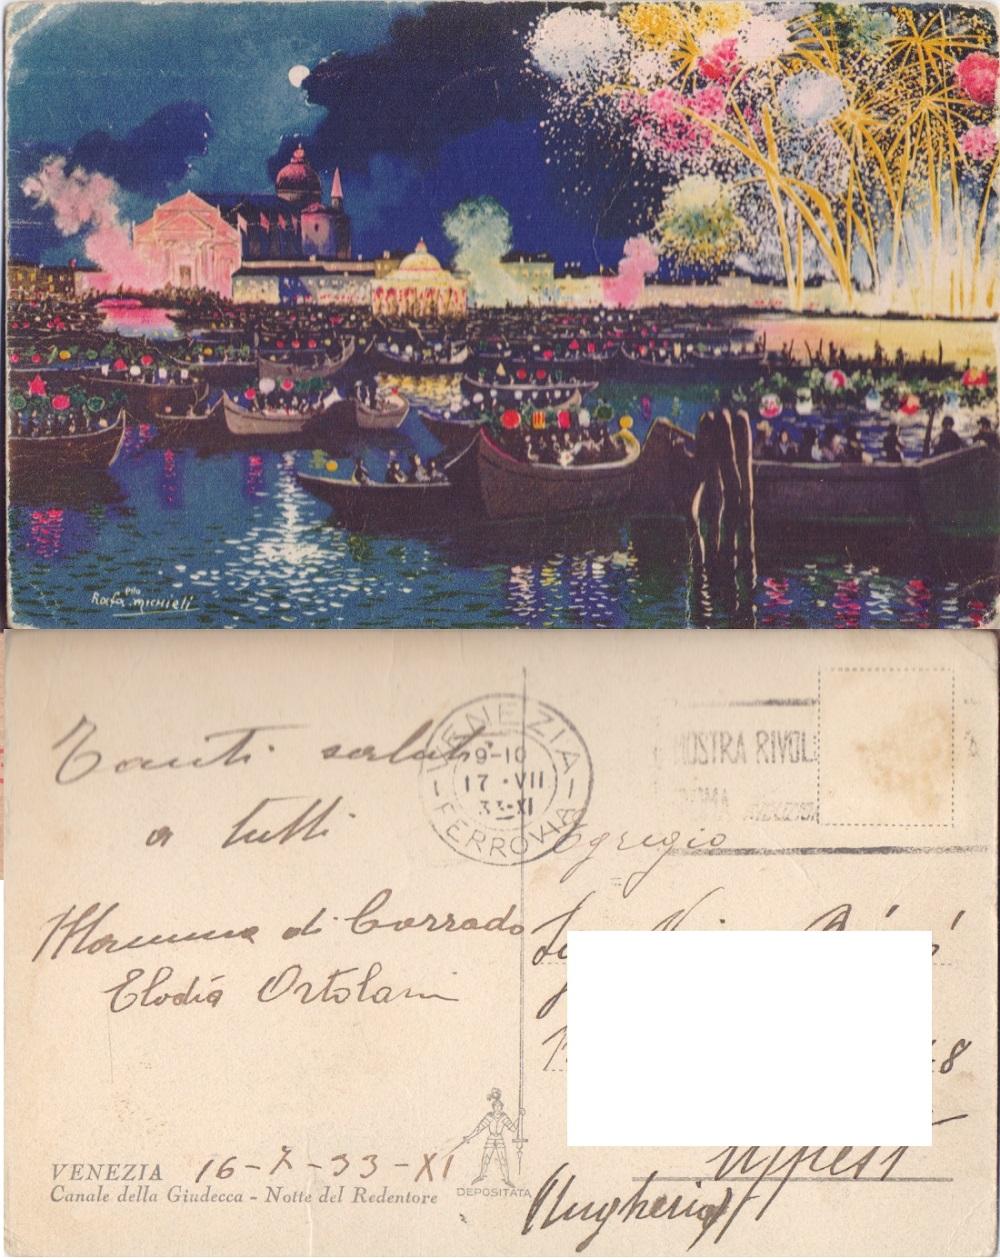 Rafa Michieli
Tanti saluti
a tutti
Mamma di Corrado
Elodia Ortolani
VENEZIA
FERROVIA
19-10
17 · VII
33-XI
MOSTRA RIVOL
Egregio
8
Ujpest
(Ungheria)
VENEZIA 16-7-33-XI
Canale della Giudecca - Notte del Redentore
DEPOSITATA